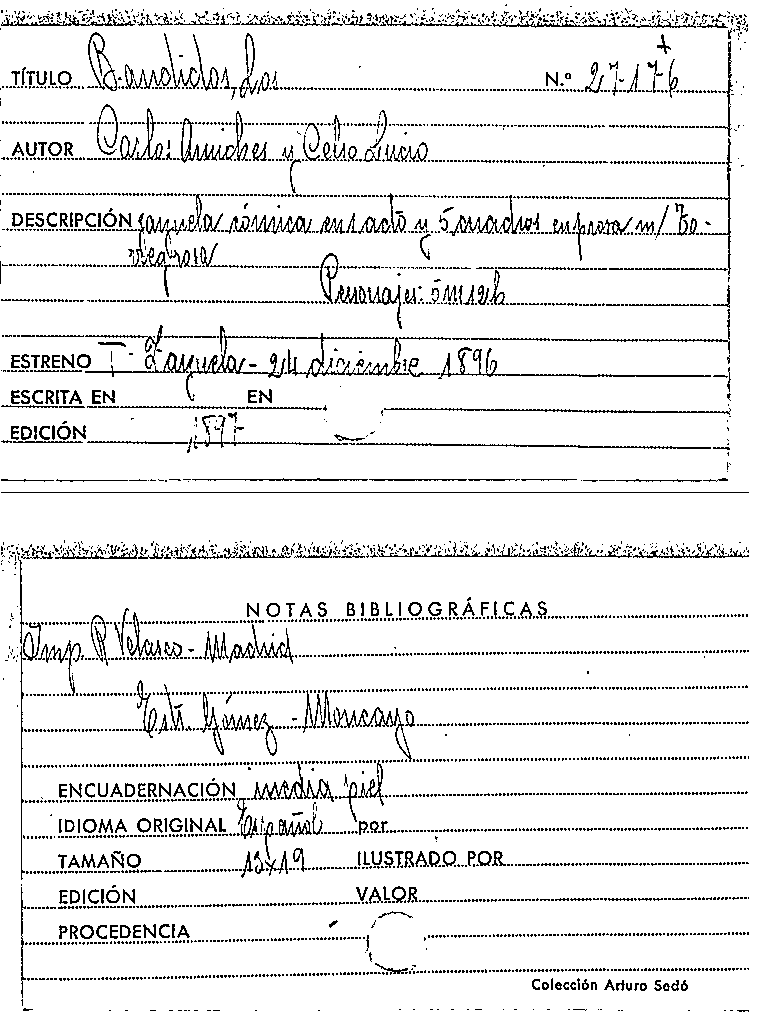 TÍTULO Bandidos, Los N.º 27-176
AUTOR Carlos Arniches y Celso Lucio
DESCRIPCIÓN zarzuela cómica en 1 acto y 5 cuadros en prosa m/ To-
rregrosa
Personajes: 5 m 12 h
ESTRENO T- Zarzuela - 24 diciembre 1896
ESCRITA EN EN
EDICIÓN 1897
NOTAS BIBLIOGRÁFICAS
Imp. R Velasco - Madrid
Estr Gómez - Moncayo
ENCUADERNACIÓN media piel
IDIOMA ORIGINAL Español por
TAMAÑO 13x19 ILUSTRADO POR
EDICIÓN VALOR
PROCEDENCIA
Colección Arturo Sedó